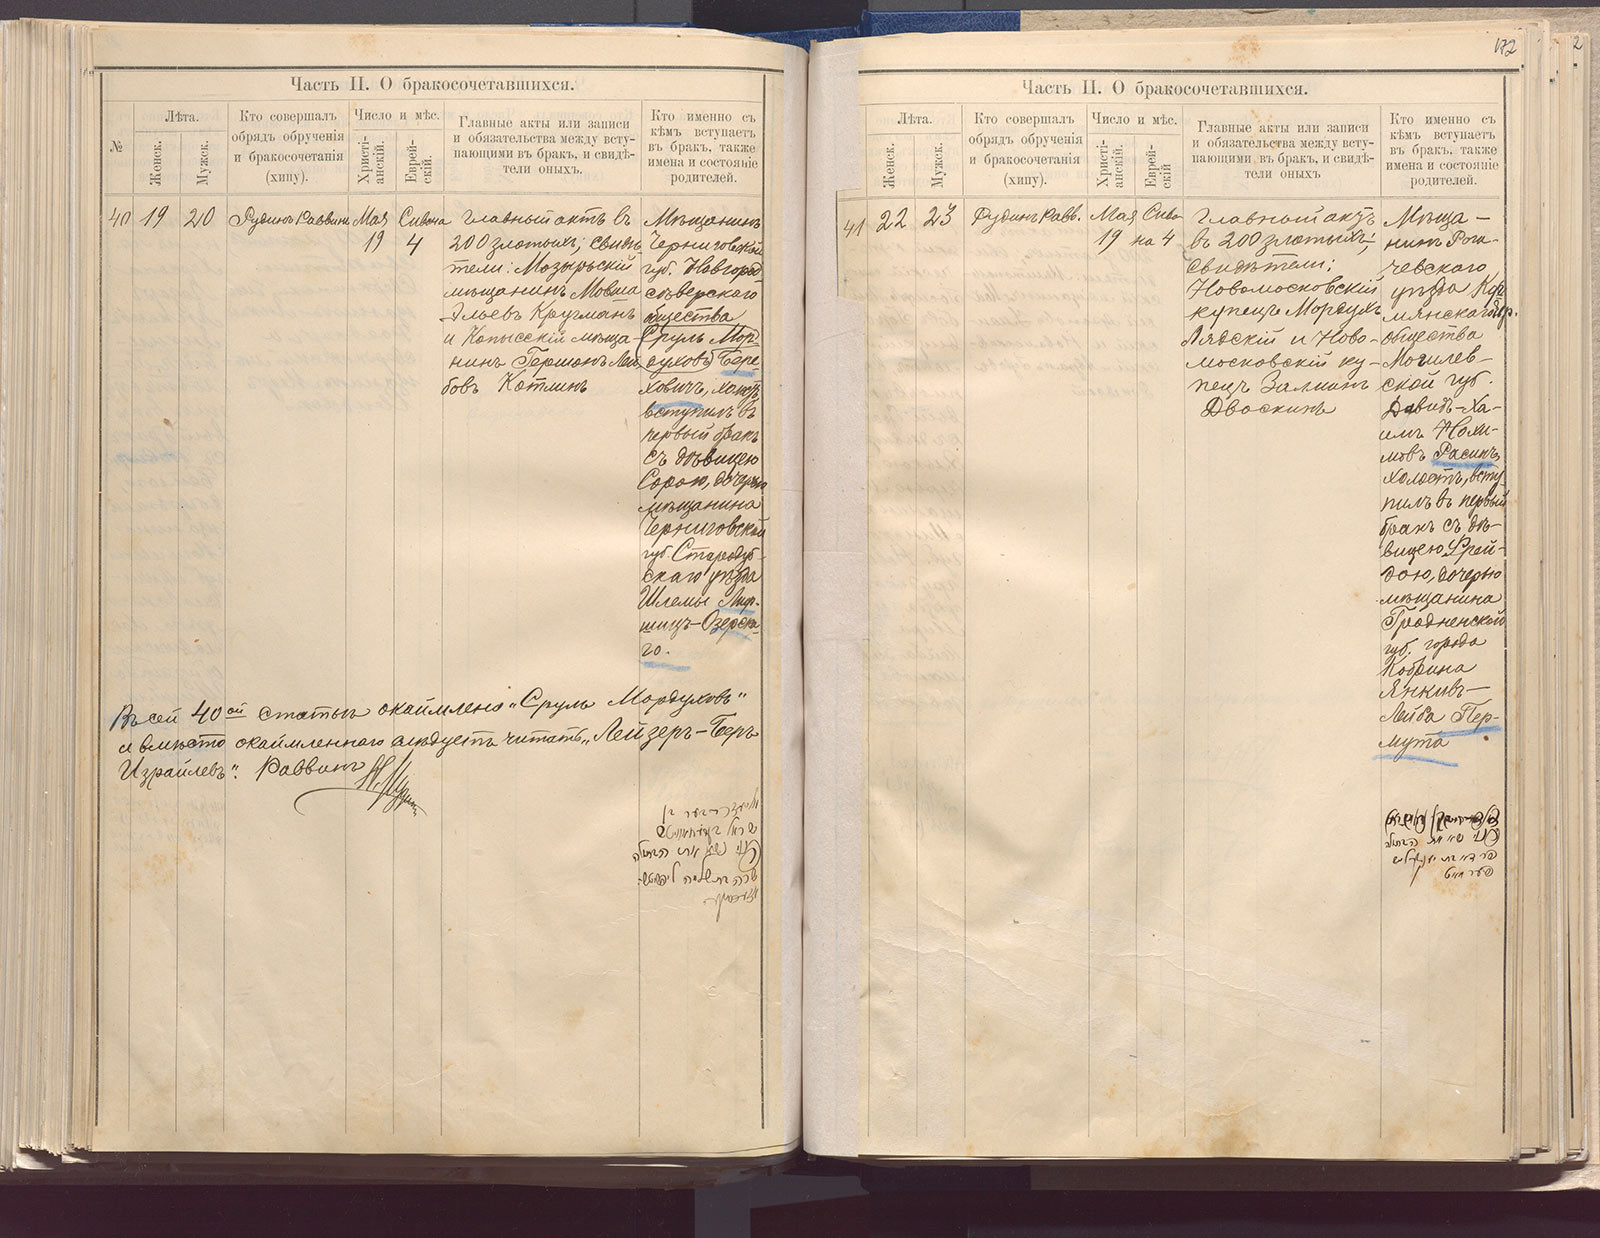 Часть II. О бракосочетавшихся.
№
Лѣта.
Женск.
Мужск.
Кто совершалъ
обрядъ обрученія
и бракосочетанія
(хипу).
Число и мѣс.
Христі-
анскій.
Еврей-
скій.
Главные акты или записи
и обязательства между всту-
пающими въ бракъ, и свидѣ-
тели оныхъ.
Кто именно съ
кѣмъ вступаетъ
въ бракъ, также
имена и состояніе
родителей.
40
19
20
Рудинъ Раввинъ
Мая
19
Сивона
4
Главный актъ въ
200 злотыхъ; свидѣ
тели: Мозырьскій
мѣщанинъ Мовша
Эльевъ Кругманъ
и Копысскій мѣща-
нинъ Гершонъ Лей
бовъ Котлинъ
Мѣщанинъ
Черниговской
губ. Новгород
сѣверскаго
общества
Сруль Мор
духовъ Бере-
ховичъ, холостъ,
вступилъ въ
первый бракъ
съ дѣвицею
Сорою, дочерью
мѣщанина
Черниговской
губ. Стародуб-
скаго уѣзда
Шлемы Лиф-
шицъ-Озерска-
го.
Въ сей 40ой статьи окаймлено „Сруль Мордуховъ"
и вмѣсто окаймленнаго слѣдуетъ читать „Лейзеръ-Беръ
Израилевъ". Раввинъ
172
2
Часть II. О бракосочетавшихся.
Лѣта.
Женск.
Мужск.
Кто совершалъ
обрядъ обрученія
и бракосочетанія
(хипу).
Число и мѣс.
Христі-
анскій.
Еврей-
скій
Главные акты или записи
и обязательства между всту-
пающими въ бракъ, и свидѣ-
тели оныхъ
Кто именно съ
кѣмъ вступаетъ
въ бракъ, также
имена и состояніе
родителей.
41
22
23
Рудинъ Равв.
Мая
19
Сива
на 4
Главный актъ
въ 200 злотыхъ;
свидѣтели:
Новомосковскій
купецъ Мордухъ
Лядскій и Ново-
московскій ку-
пецъ Залманъ
Двоскинъ
Мѣща-
нинъ Рога-
чевскаго
уѣзда Кор
мянскаго
общества
Могилев-
ской губ.
Давидъ-Ха-
имъ Нохи-
мовъ Расинъ,
холостъ, всту-
пилъ въ первый
бракъ съ дѣ-
вицею Фрей-
дою, дочерью
мѣщанина
Гродненской
губ. города
Кобрина
Янкивъ-
Лейба Пер-
мута